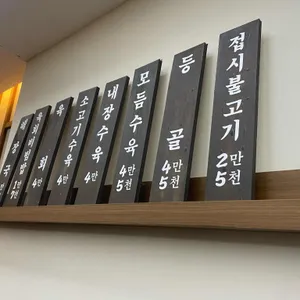 접시불고기 2만5천
등골 4만5천
모듬수육 4만5천
내장수육 4만
소고기수육 4만
육회 4만
육회비빔밥